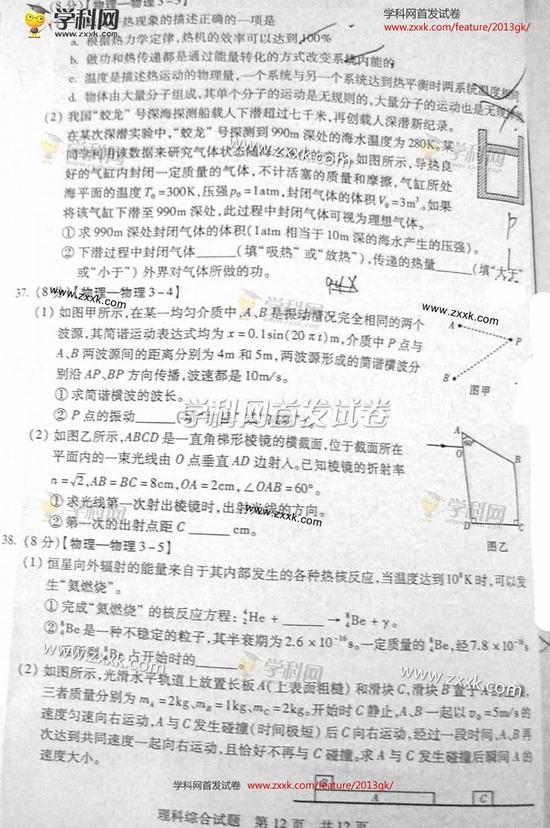 学科网首发试卷
www.zxxk.com/feature/2013gk/
(8分)【物理—物理3-5】
热现象的描述正确的一项是
a. 根据热力学定律,热机的效率可以达到100%
b. 做功和热传递都是通过能量转化的方式改变系统内能的
c. 温度是描述热运动的物理量,一个系统与另一个系统达到热平衡时两系统温度相同
d. 物体由大量分子组成,其单个分子的运动是无规则的,大量分子的运动也是无规
(2) 我国"蛟龙"号深海探测船载人下潜超过七千米,再创载人深潜新纪录。
在某次深潜实验中,"蛟龙"号探测到990m深处的海水温度为280K。某
同学利用该数据来研究气体状态随
如图所示,导热良
好的气缸内封闭一定质量的气体,不计活塞的质量和摩擦,气缸所处
海平面的温度T₀=300K,压强p₀=1atm,封闭气体的体积V₀=3m³。如果
将该气缸下潜至990m深处,此过程中封闭气体可视为理想气体。
① 求990m深处封闭气体的体积(1atm相当于10m深的海水产生的压强)。
② 下潜过程中封闭气体______(填"吸热"或"放热"),传递的热量______(填"大于"
或"小于")外界对气体所做的功。
37. (8分)【物理—物理3-4】
(1) 如图甲所示,在某一均匀介质中,A、B是振动情况完全相同的两个
波源,其简谐运动表达式均为x=0.1sin(20πt)m,介质中P点与
A、B两波源间的距离分别为4m和5m,两波源形成的简谐横波分
别沿AP、BP方向传播,波速都是10m/s。
① 求简谐横波的波长。
② P点的振动______
A
P
B
图甲
(2) 如图乙所示,ABCD是一直角梯形棱镜的横截面,位于截面所在
平面内的一束光线由O点垂直AD边射入。已知棱镜的折射率
n=√2,AB=BC=8cm,OA=2cm,∠OAB=60°。
① 求光线第一次射出棱镜时,出射光线的方向。
② 第一次的出射点距C______cm。
A
60°
O
B
D
C
图乙
38. (8分)【物理—物理3-5】
(1) 恒星向外辐射的能量来自于其内部发生的各种热核反应,当温度达到10⁸K时,可以发
生"氦燃烧"。
① 完成"氦燃烧"的核反应方程:⁴₂He+______→⁸₄Be+γ。
② ⁸₄Be是一种不稳定的粒子,其半衰期为2.6×10⁻¹⁶s。一定质量的⁸₄Be,经7.8×10⁻¹⁶s
占开始时的______。
(2) 如图所示,光滑水平轨道上放置长板A(上表面粗糙)和滑块C,滑块B置于
三者质量分别为mA=2kg、mB=1kg、mC=2kg。开始时C静止,A、B一起以v₀=5m/s的
速度匀速向右运动,A与C发生碰撞(时间极短)后C向右运动,经过一段时间,A、B再
次达到共同速度一起向右运动,且恰好不再与C碰撞。求A与C发生碰撞后瞬间A的
速度大小。
B
A
C
学科网首发试卷
www.zxxk.com/feature/2013gk/
理科综合试题 第12页 共12页
学科网
www.zxxk.com
学科网首发试卷